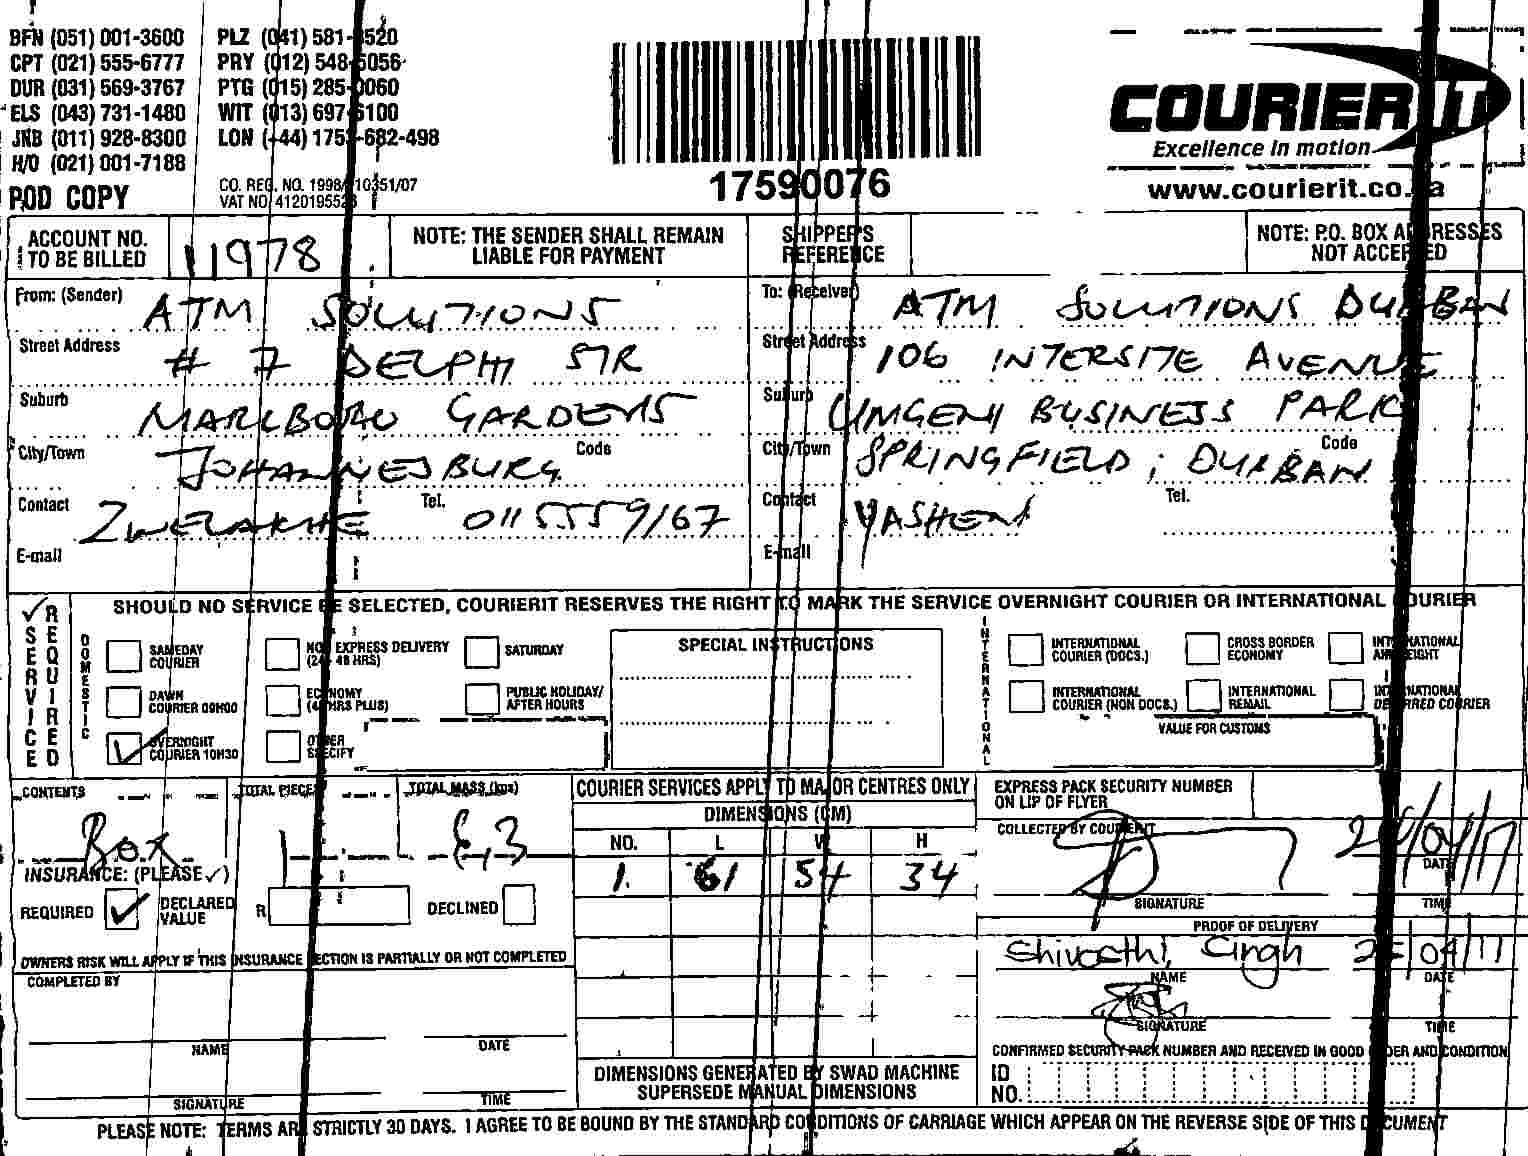 BFN (051) 001-3600 PLZ (041) 581-3520
CPT (021) 555-6777 PRY (012) 548-5056
DUR (031) 569-3767 PTG (015) 285-0060
ELS (043) 731-1480 WIT (013) 697-6100
JNB (011) 928-8300 LON (+44) 1753-682-498
H/O (021) 001-7188
POD COPY
CO. REG. NO. 1998/010351/07
VAT NO.
17590076
COURIER IT
Excellence in motion
www.courierit.co.za
ACCOUNT NO. TO BE BILLED 11978
NOTE: THE SENDER SHALL REMAIN LIABLE FOR PAYMENT
SHIPPER'S REFERENCE
NOTE: P.O. BOX ADDRESSES NOT ACCEPTED
From: (Sender) ATM SOLUTIONS
Street Address # 7 DELPHI STR
Suburb MARLBORO GARDENS
City/Town JOHANNESBURG Code
Contact ZWELAKHE Tel. 0115559167
E-mail
To: (Receiver) ATM SOLUTIONS DURBAN
Street Address 106 INTERSITE AVENUE
Suburb UMGENI BUSINESS PARK
City/Town SPRINGFIELD, DURBAN Code
Contact YASHEN Tel.
E-mail
SERVICE REQUIRED
SHOULD NO SERVICE BE SELECTED, COURIERIT RESERVES THE RIGHT TO MARK THE SERVICE OVERNIGHT COURIER OR INTERNATIONAL COURIER
DOMESTIC
SAMEDAY COURIER
DAWN COURIER 09H00
OVERNIGHT COURIER 10H30
NON EXPRESS DELIVERY (24 - 48 HRS)
ECONOMY (48 HRS PLUS)
OTHER SPECIFY
SATURDAY
PUBLIC HOLIDAY/ AFTER HOURS
SPECIAL INSTRUCTIONS
INTERNATIONAL
INTERNATIONAL COURIER (DOCS.)
INTERNATIONAL COURIER (NON DOCS.)
CROSS BORDER ECONOMY
INTERNATIONAL REMAIL
INTERNATIONAL AIRFREIGHT
INTERNATIONAL DEFERRED COURIER
VALUE FOR CUSTOMS
CONTENTS Box
TOTAL PIECES 1
TOTAL MASS (kgs) 6,3
INSURANCE: (PLEASE ✓)
REQUIRED ✓ DECLARED VALUE R DECLINED
OWNERS RISK WILL APPLY IF THIS INSURANCE SECTION IS PARTIALLY OR NOT COMPLETED
COMPLETED BY
NAME DATE
SIGNATURE TIME
COURIER SERVICES APPLY TO MAJOR CENTRES ONLY
DIMENSIONS (CM)
NO. L W H
1. 61 54 34
DIMENSIONS GENERATED BY SWAD MACHINE
SUPERSEDE MANUAL DIMENSIONS
EXPRESS PACK SECURITY NUMBER ON LIP OF FLYER
COLLECTED BY COURIERIT
DATE
SIGNATURE TIME
PROOF OF DELIVERY
Singh
NAME DATE
SIGNATURE TIME
CONFIRMED SECURITY PACK NUMBER AND RECEIVED IN GOOD ORDER AND CONDITION
ID NO.
PLEASE NOTE: TERMS ARE STRICTLY 30 DAYS. I AGREE TO BE BOUND BY THE STANDARD CONDITIONS OF CARRIAGE WHICH APPEAR ON THE REVERSE SIDE OF THIS DOCUMENT